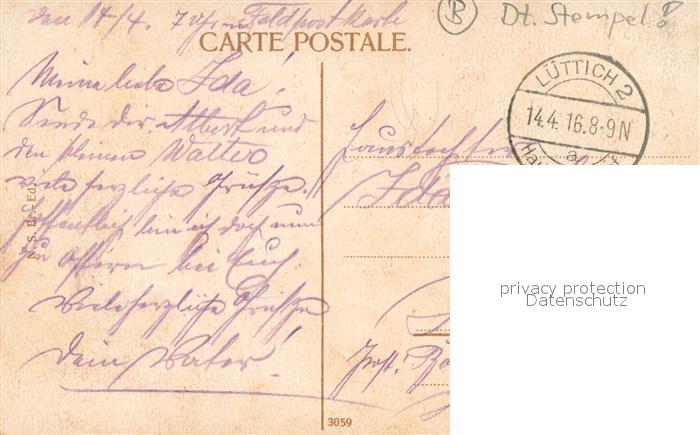 den 14/4. 7 Uhr Feldpostkarte
(B) Dt. Stempel!
CARTE POSTALE.
Meine liebe Ida!
Sende dir, Albert und
den kleinen Walter
viele herzliche Grüße.
Hoffentlich bin ich doch nun
zu Ostern bei Euch.
Viele herzliche Grüße
Dein Vater!
N. S. Br. Ed.
3059
LÜTTICH 2
14.4.16.8-9N
a
Ida
Post:
privacy protection
Datenschutz